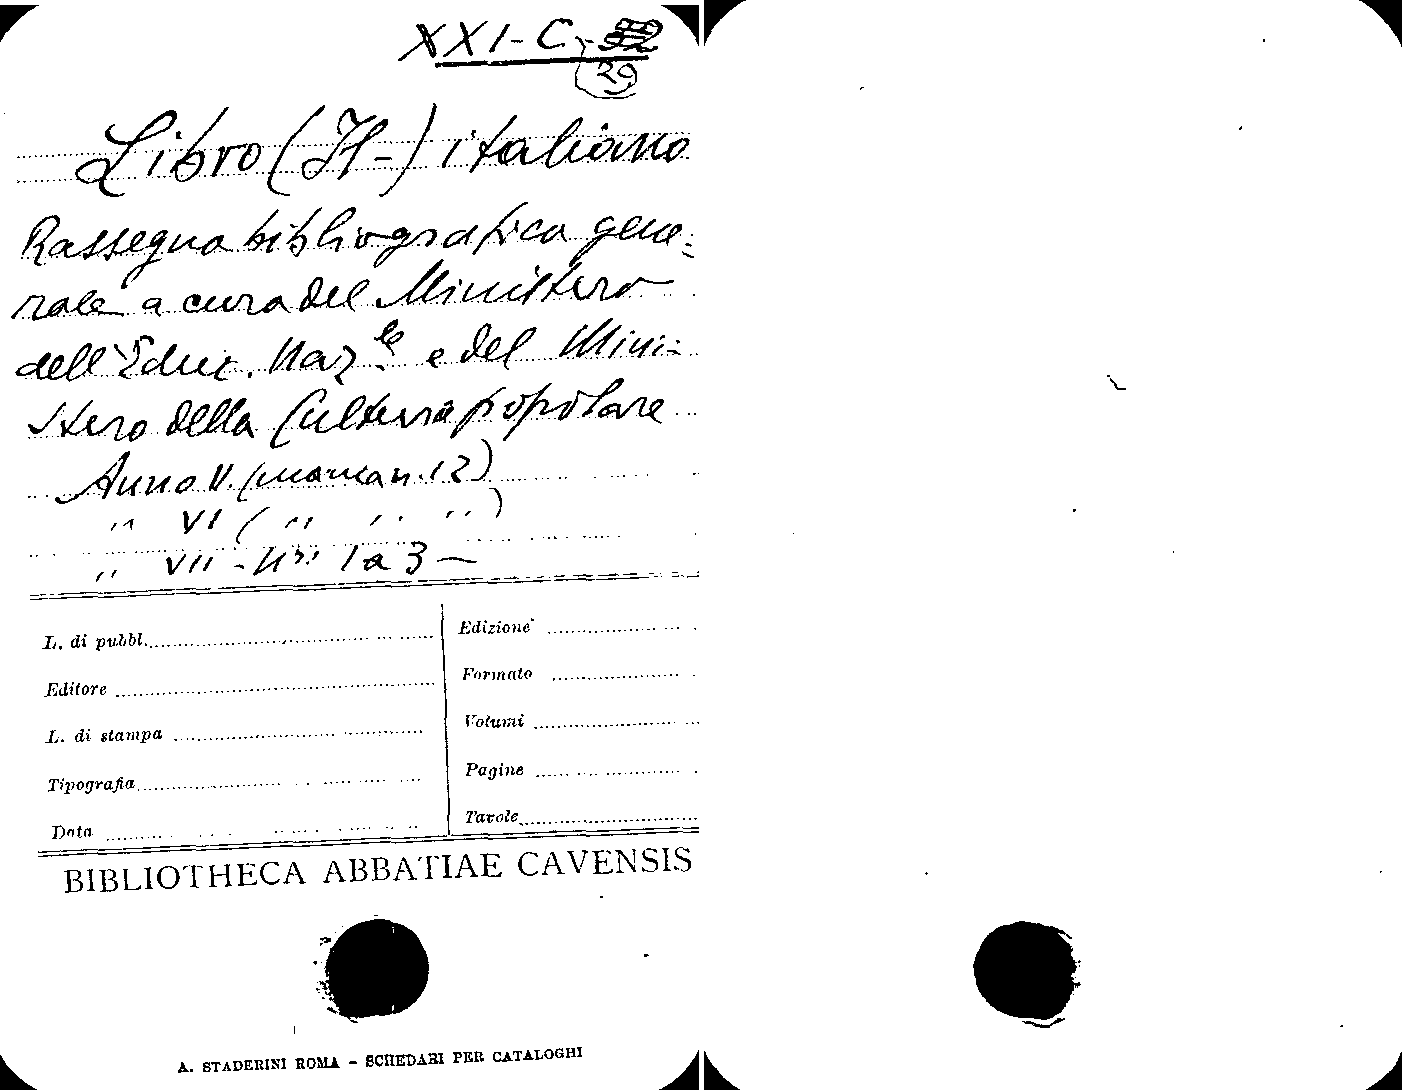 XXI-C-
29
Libro (Il-) italiano
Rassegna bibliografica gene-
rale a cura del Ministero
dell'Educ. Naz.le e del Mini-
stero della Cultura popolare
Anno V. (manca n. 12)
" VI ( " " " )
" VII - N.ri 1 a 3 —
L. di pubbl.
Edizione
Editore
Formato
L. di stampa
Volumi
Tipografia
Pagine
Data
Tavole
BIBLIOTHECA ABBATIAE CAVENSIS
A. STADERINI ROMA - SCHEDARI PER CATALOGHI